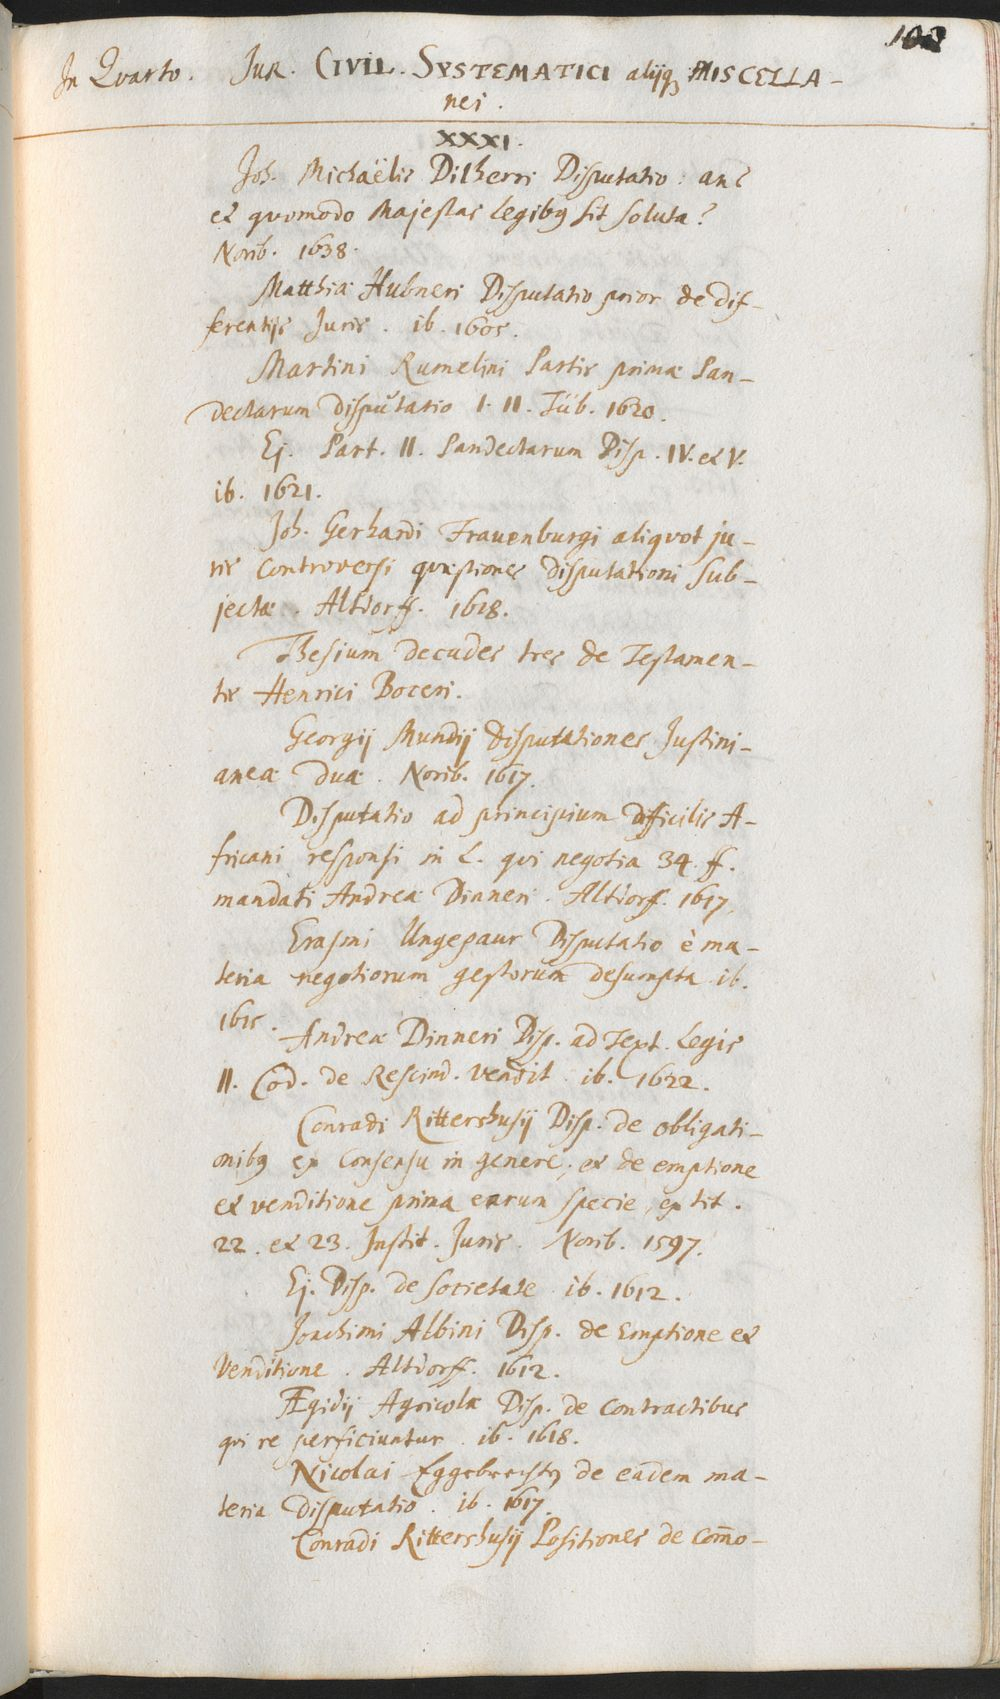 In Qvarto. JUR. CIVIL. SYSTEMATICI alijq; MISCELLA-
nei.
XXXI.
Joh. Michaëlis Dilherri Disputatio: an?
et quomodo Majestas legibq sit soluta?
Norib. 1638.
Matthiæ Hubneri Disputatio prior de dif-
ferentijs Juris. ib. 1605.
Martini Rumelini Partis primæ Pan-
dectarum disputatio I. II. Tüb. 1620.
Ej. Part. II. Pandectarum Disp. IV. et V.
ib. 1621.
Joh. Gerhardi Frauenburgi aliqvot ju-
ris controversi qvæstiones disputationi sub-
jectæ. Altdorff. 1628.
Thesium decades tres de Testamen-
tis Henrici Boceri.
Georgij Mundij Disputationes Justini-
aneæ duæ. Norib. 1617.
Disputatio ad principium difficilis A-
fricani responsi in L. qvi negotia 34. ff.
mandati Andreæ Dinneri. Altdorff. 1617.
Erasmi Ungepaur Disputatio è ma-
teria negotiorum gestorum desumpta. ib.
1615.
Andreæ Dinneri Disp. ad Text. Legis
II. Cod. de Rescind. Vendit. ib. 1622.
Conradi Rittershusij Disp. de obligati-
onibq ex consensu in genere, et de emptione
et venditione prima earum specie, ex tit.
22. et 23. Instit. Juris. Norib. 1597.
Ej. Disp. de Societate ib. 1612.
Joachimi Albini Disp. de Emptione et
Venditione. Altdorff. 1612.
Ægidij Agricolæ Disp. de contractibus
qvi re perficiuntur. ib. 1618.
Nicolai de eadem ma-
teria Disputatio. ib. 1617.
Conradi Rittershusij Positiones de com̄o-